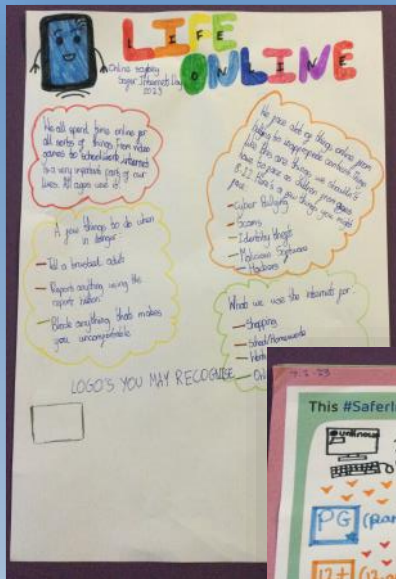 LIFE
ONLINE
Online safety
Safer Internet Day
2023
We all spend time online for
all sorts of things. From video
games to schoolwork, internet
is a very important part of our
lives. All ages use it.
We face alot of things online from
to inappropriate content. Things
like this are things we shouldn't
have to face as children from ages
8-12. Here's a few things you might
face:
- Cyber Bullying
- Scams
- Identity thefts
- Malicious Software
- Hackers
A few things to do when
in danger:
- Tell a trusted adult
- Report anything using the
report button
- Block anything thats makes
you uncomfortable
What we use the internet for:
- Shopping
- School/Homework
- Onl
LOGO'S YOU MAY RECOGNISE
7.2.23
This #SaferIn
PG (par
12+